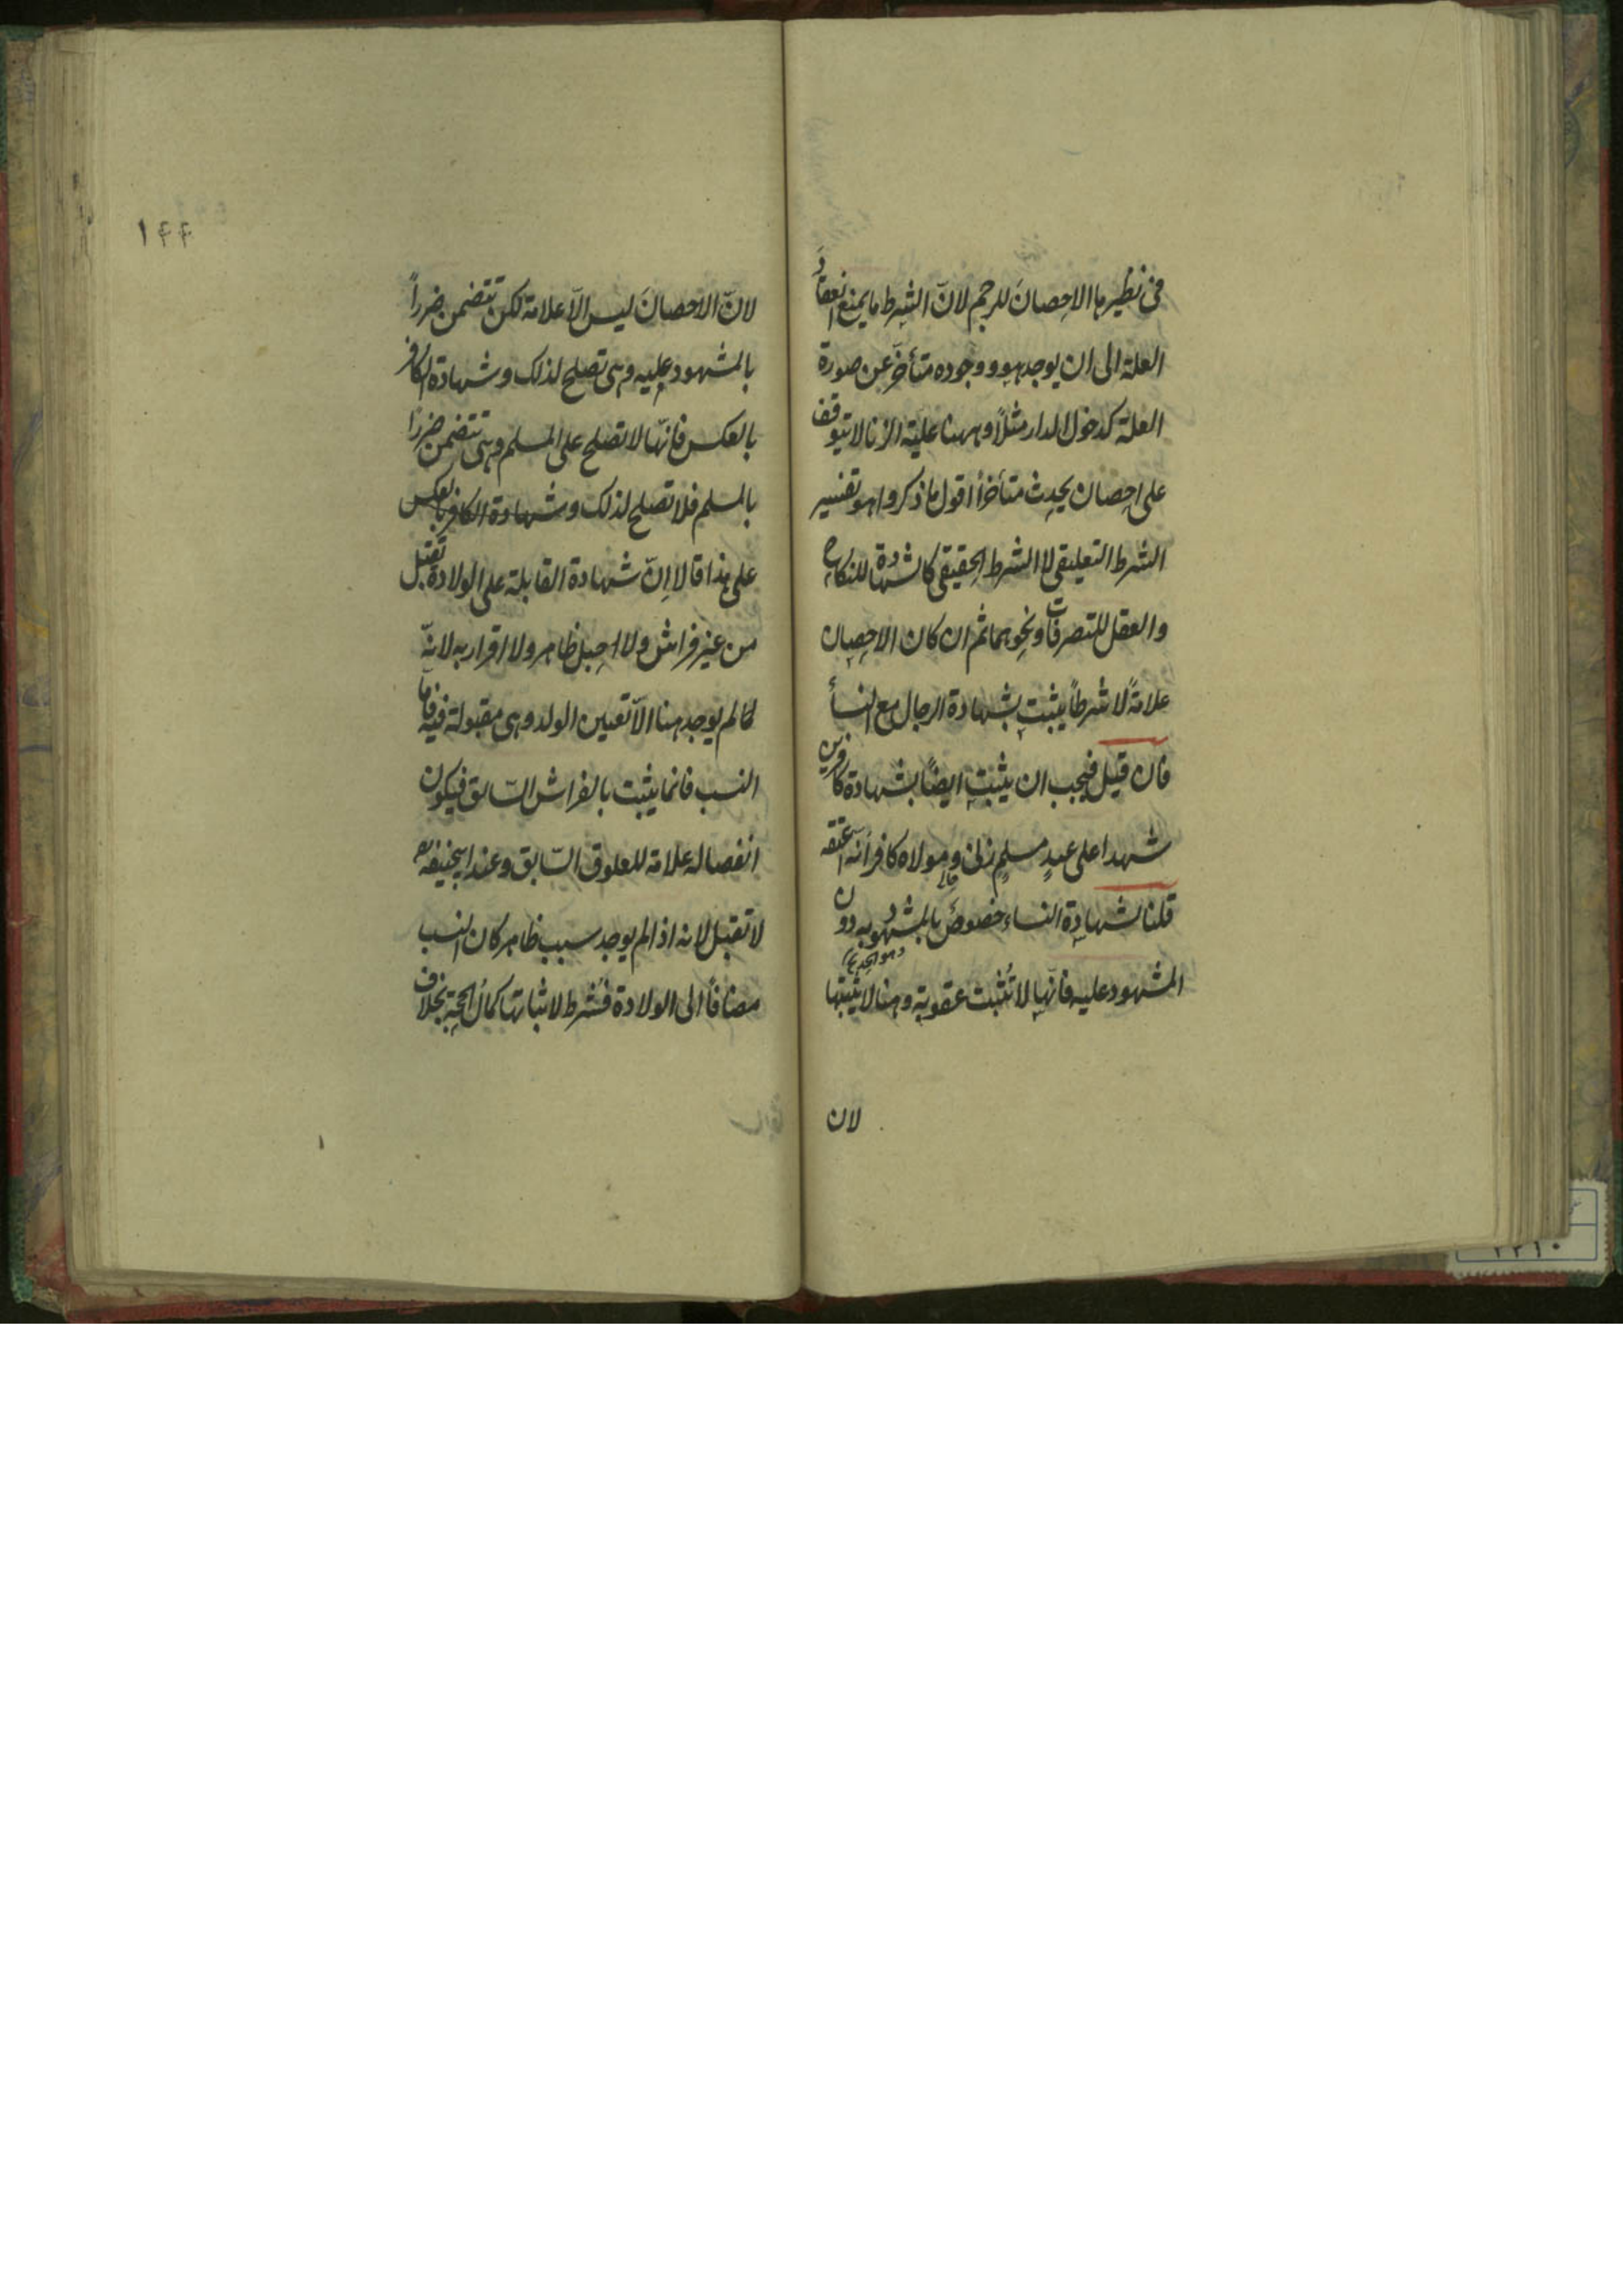 فى نظيرها الاحصانَ للرجم لانّ الشرط ما يمنع انعقادَ
العلة الى ان يوجد هو ووجوده متأخّر عن صورة
العلة كدخول الدار مثلاً وههنا علية الزنا لا تتوقف
على احصان يحدث متأخراً اقول ما ذكروا هو تفسير
الشرط التعليقى لا الشرط الحقيقى كالشهادة للنكاح
والعقل للتصرفات ونحوهما ثم ان كان الاحصان
علامةً لا شرطاً يثبت بشهادة الرجال مع النسأ
فان قيل فيجب ان يثبت ايضاً بشهادة كافرين
شهدا على عبدٍ مسلمٍ زنى ومولاه كافر انه اعتقه
قلنا لشهادة النساء خصوصٌ بالمشهود به دون
المشهود عليه فانّها لا تُثبت عقوبة وهنا لا يثبتها
لان
١٤٤
لانّ الاحصانَ ليس الاّ علامة لكن تتضمن ضرراً
بالمشهود عليه وهى تصلح لذلك وشهادة الكافر
بالعكس فانّها لا تصلح على المسلم وهى تتضمن ضررا
بالمسلم فلا تصلح لذلك وشهادة الكافر بالعكس
على هذا قالا اِنّ شهادة القابلة على الولادة تقبل
من غير فراش ولا حبل ظاهر ولا اقرار به لانّه
لما لم يوجد هنا الاّ تعيين الولد وهى مقبولة فيه فامّا
النسب فانما يثبت بالفراش السّابق فيكون
انفصاله علامة للعلوق السّابق وعند ابيحنيفة
لا تقبل لانه اذا لم يوجد سبب ظاهر كان النسب
مضافاً الى الولادة فشرط لاثباتها كمال الحجة بخلاف